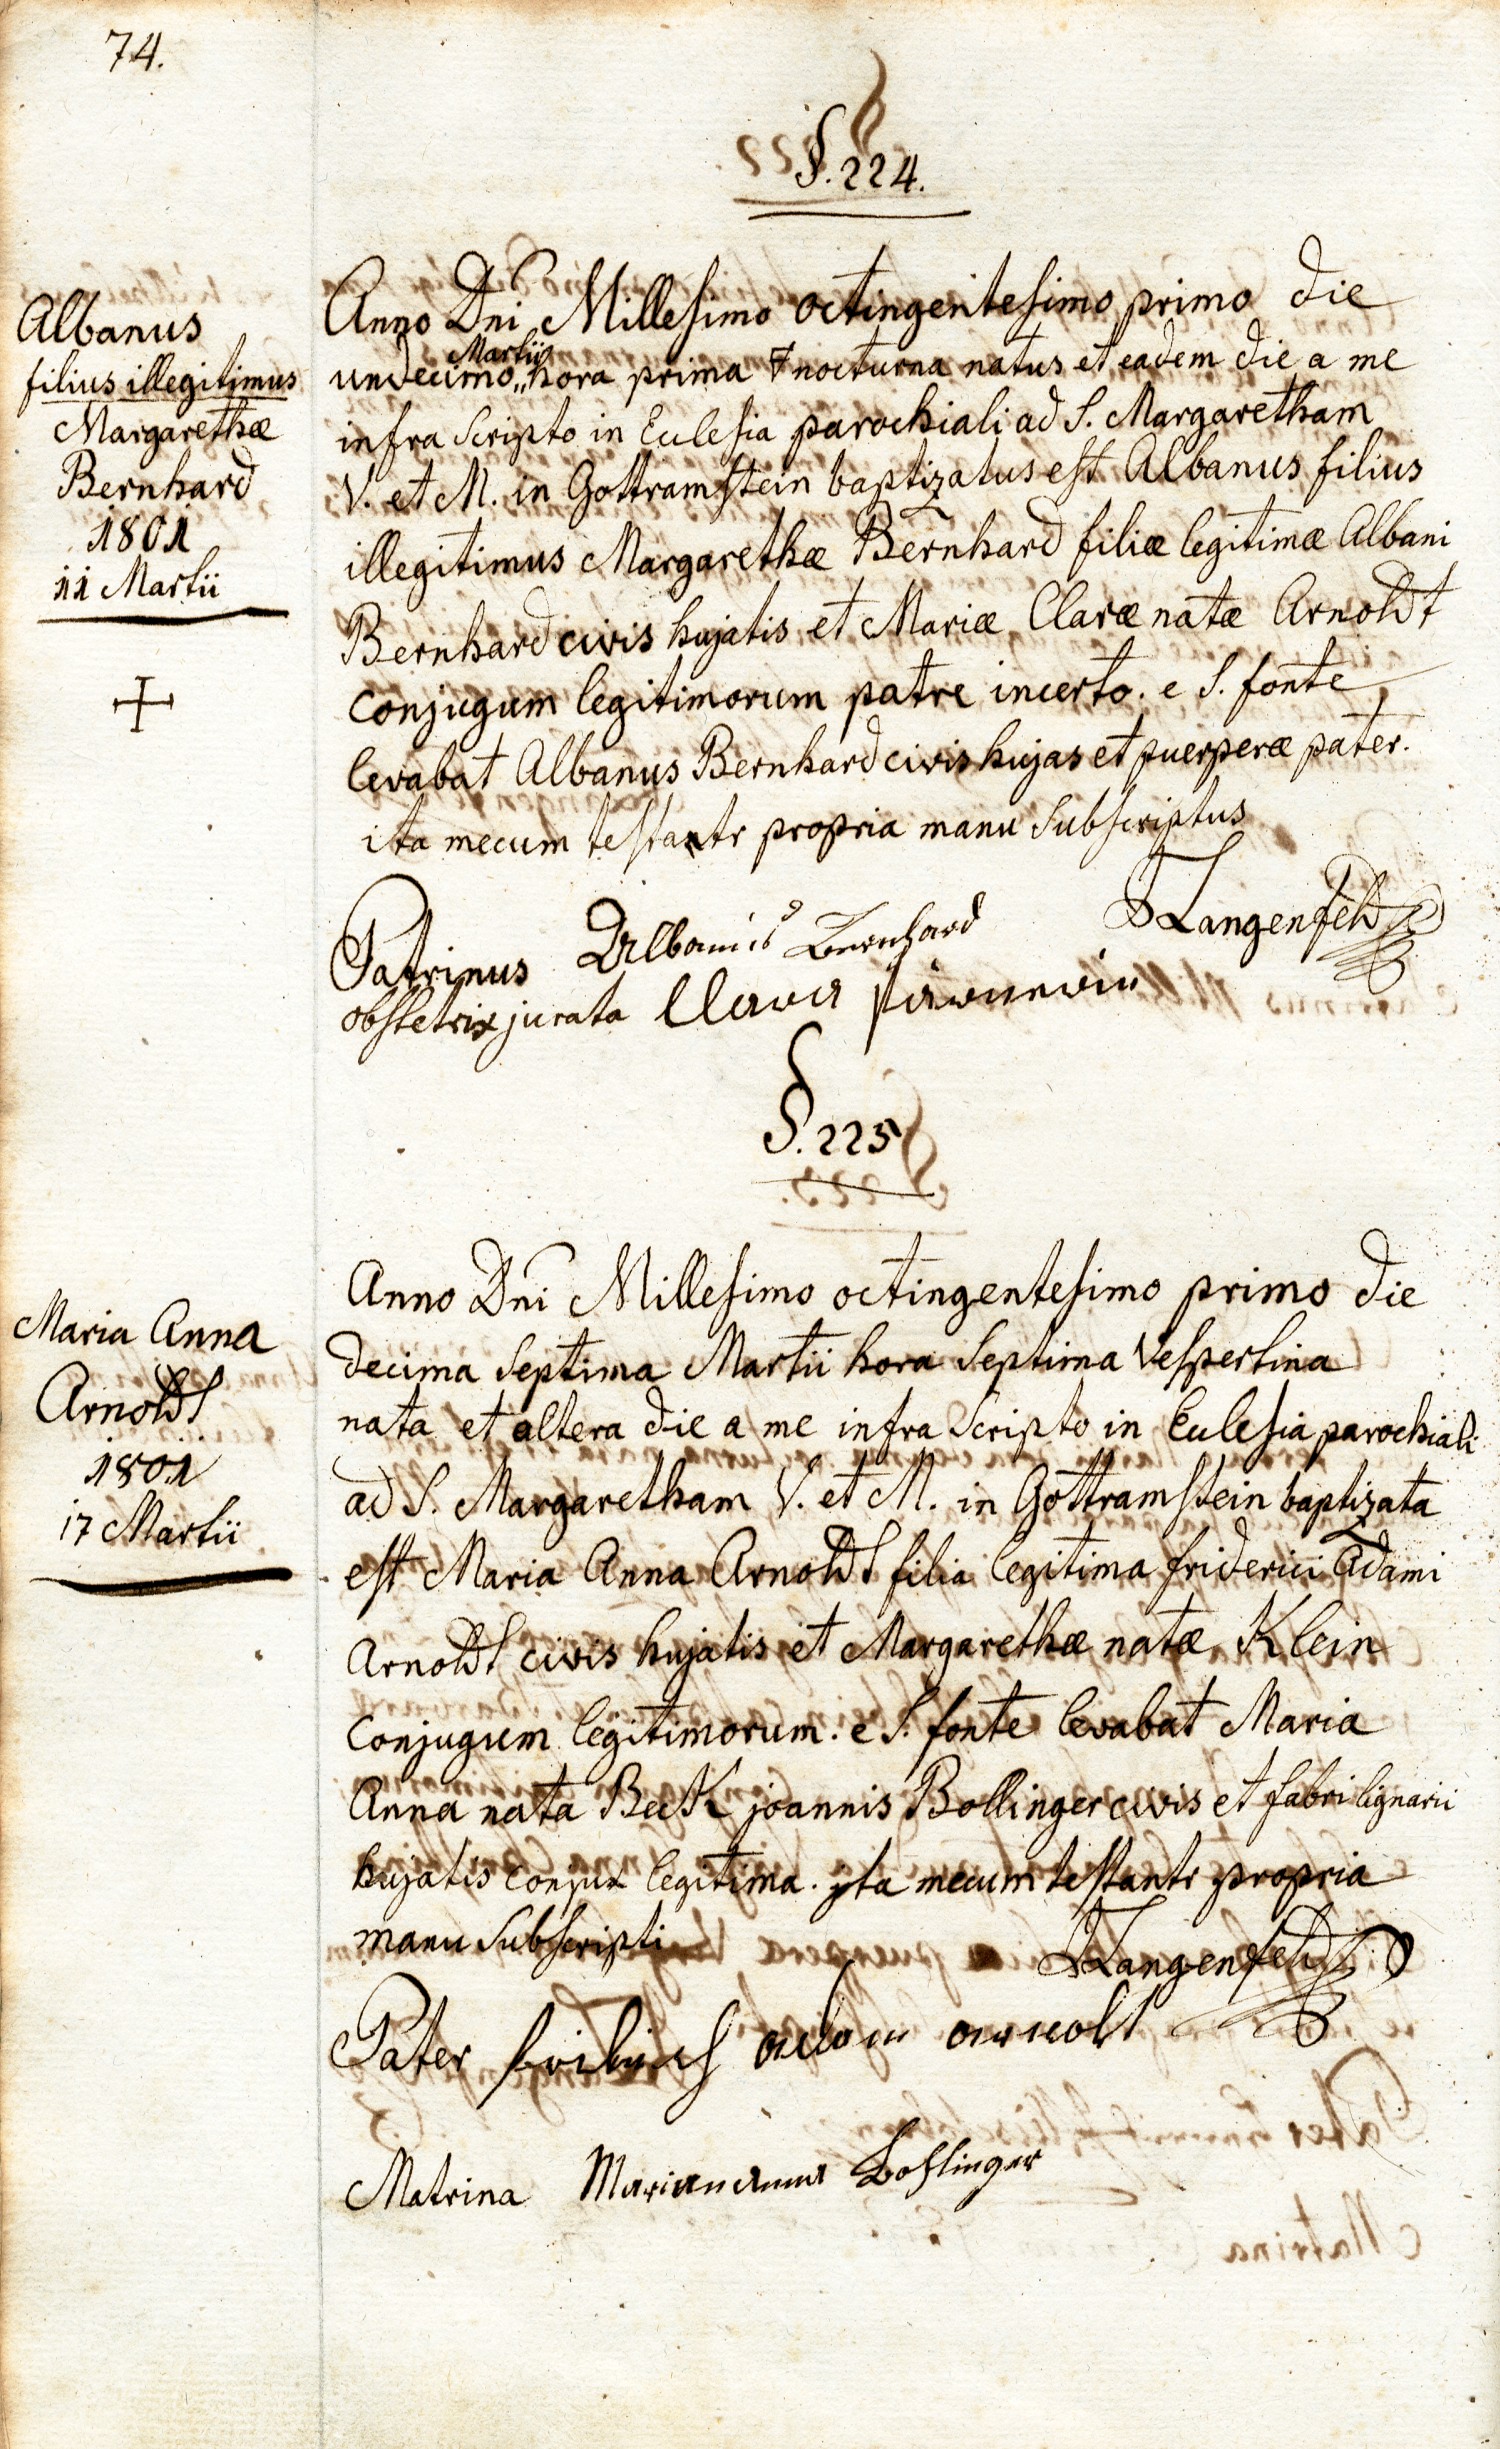 74.
§. 224.
Albanus
filius illegitimus
Margarethæ
Bernhard
1801
11 Martii
Anno Dni Millesimo octingentesimo primo die
Martii
undecimo „ hora prima nocturna natus et eadem die a me
infra scripto in Ecclesia parochiali ad S. Margaretham
V. et M. in Gottramstein baptizatus est Albanus filius
illegitimus Margarethæ Bernhard filiæ legitimæ Albani
Bernhard civis hujatis et Mariæ Claræ natæ Arnoldt
conjugum legitimorum patre incerto. e S. fonte
levabat Albanus Bernhard civis hujas et puerperæ pater.
ita mecum testantr propria manu subscriptus
Langenfeld
Patrinus Albanus Bernhard
obstetrix jurata Clara
§. 225
Maria Anna
Arnoldt
1801
17 Martii
Anno Dni Millesimo octingentesimo primo die
decima septima Martii hora septima vespertina
nata et altera die a me infra scripto in Ecclesia parochiali
ad S. Margaretham V. et M. in Gottramstein baptizata
est Maria Anna Arnoldt filia legitima friderici Adami
Arnoldt civis hujatis et Margarethæ natæ Klein
conjugum legitimorum. e S. fonte levabat Maria
Anna nata Beck joannis Bollinger civis et fabri lignarii
hujatis conjux legitima. jta mecum testantr propria
manu subscripti
Langenfeld
Pater fridrich adam arnolt
Matrina Mariananna Bollinger